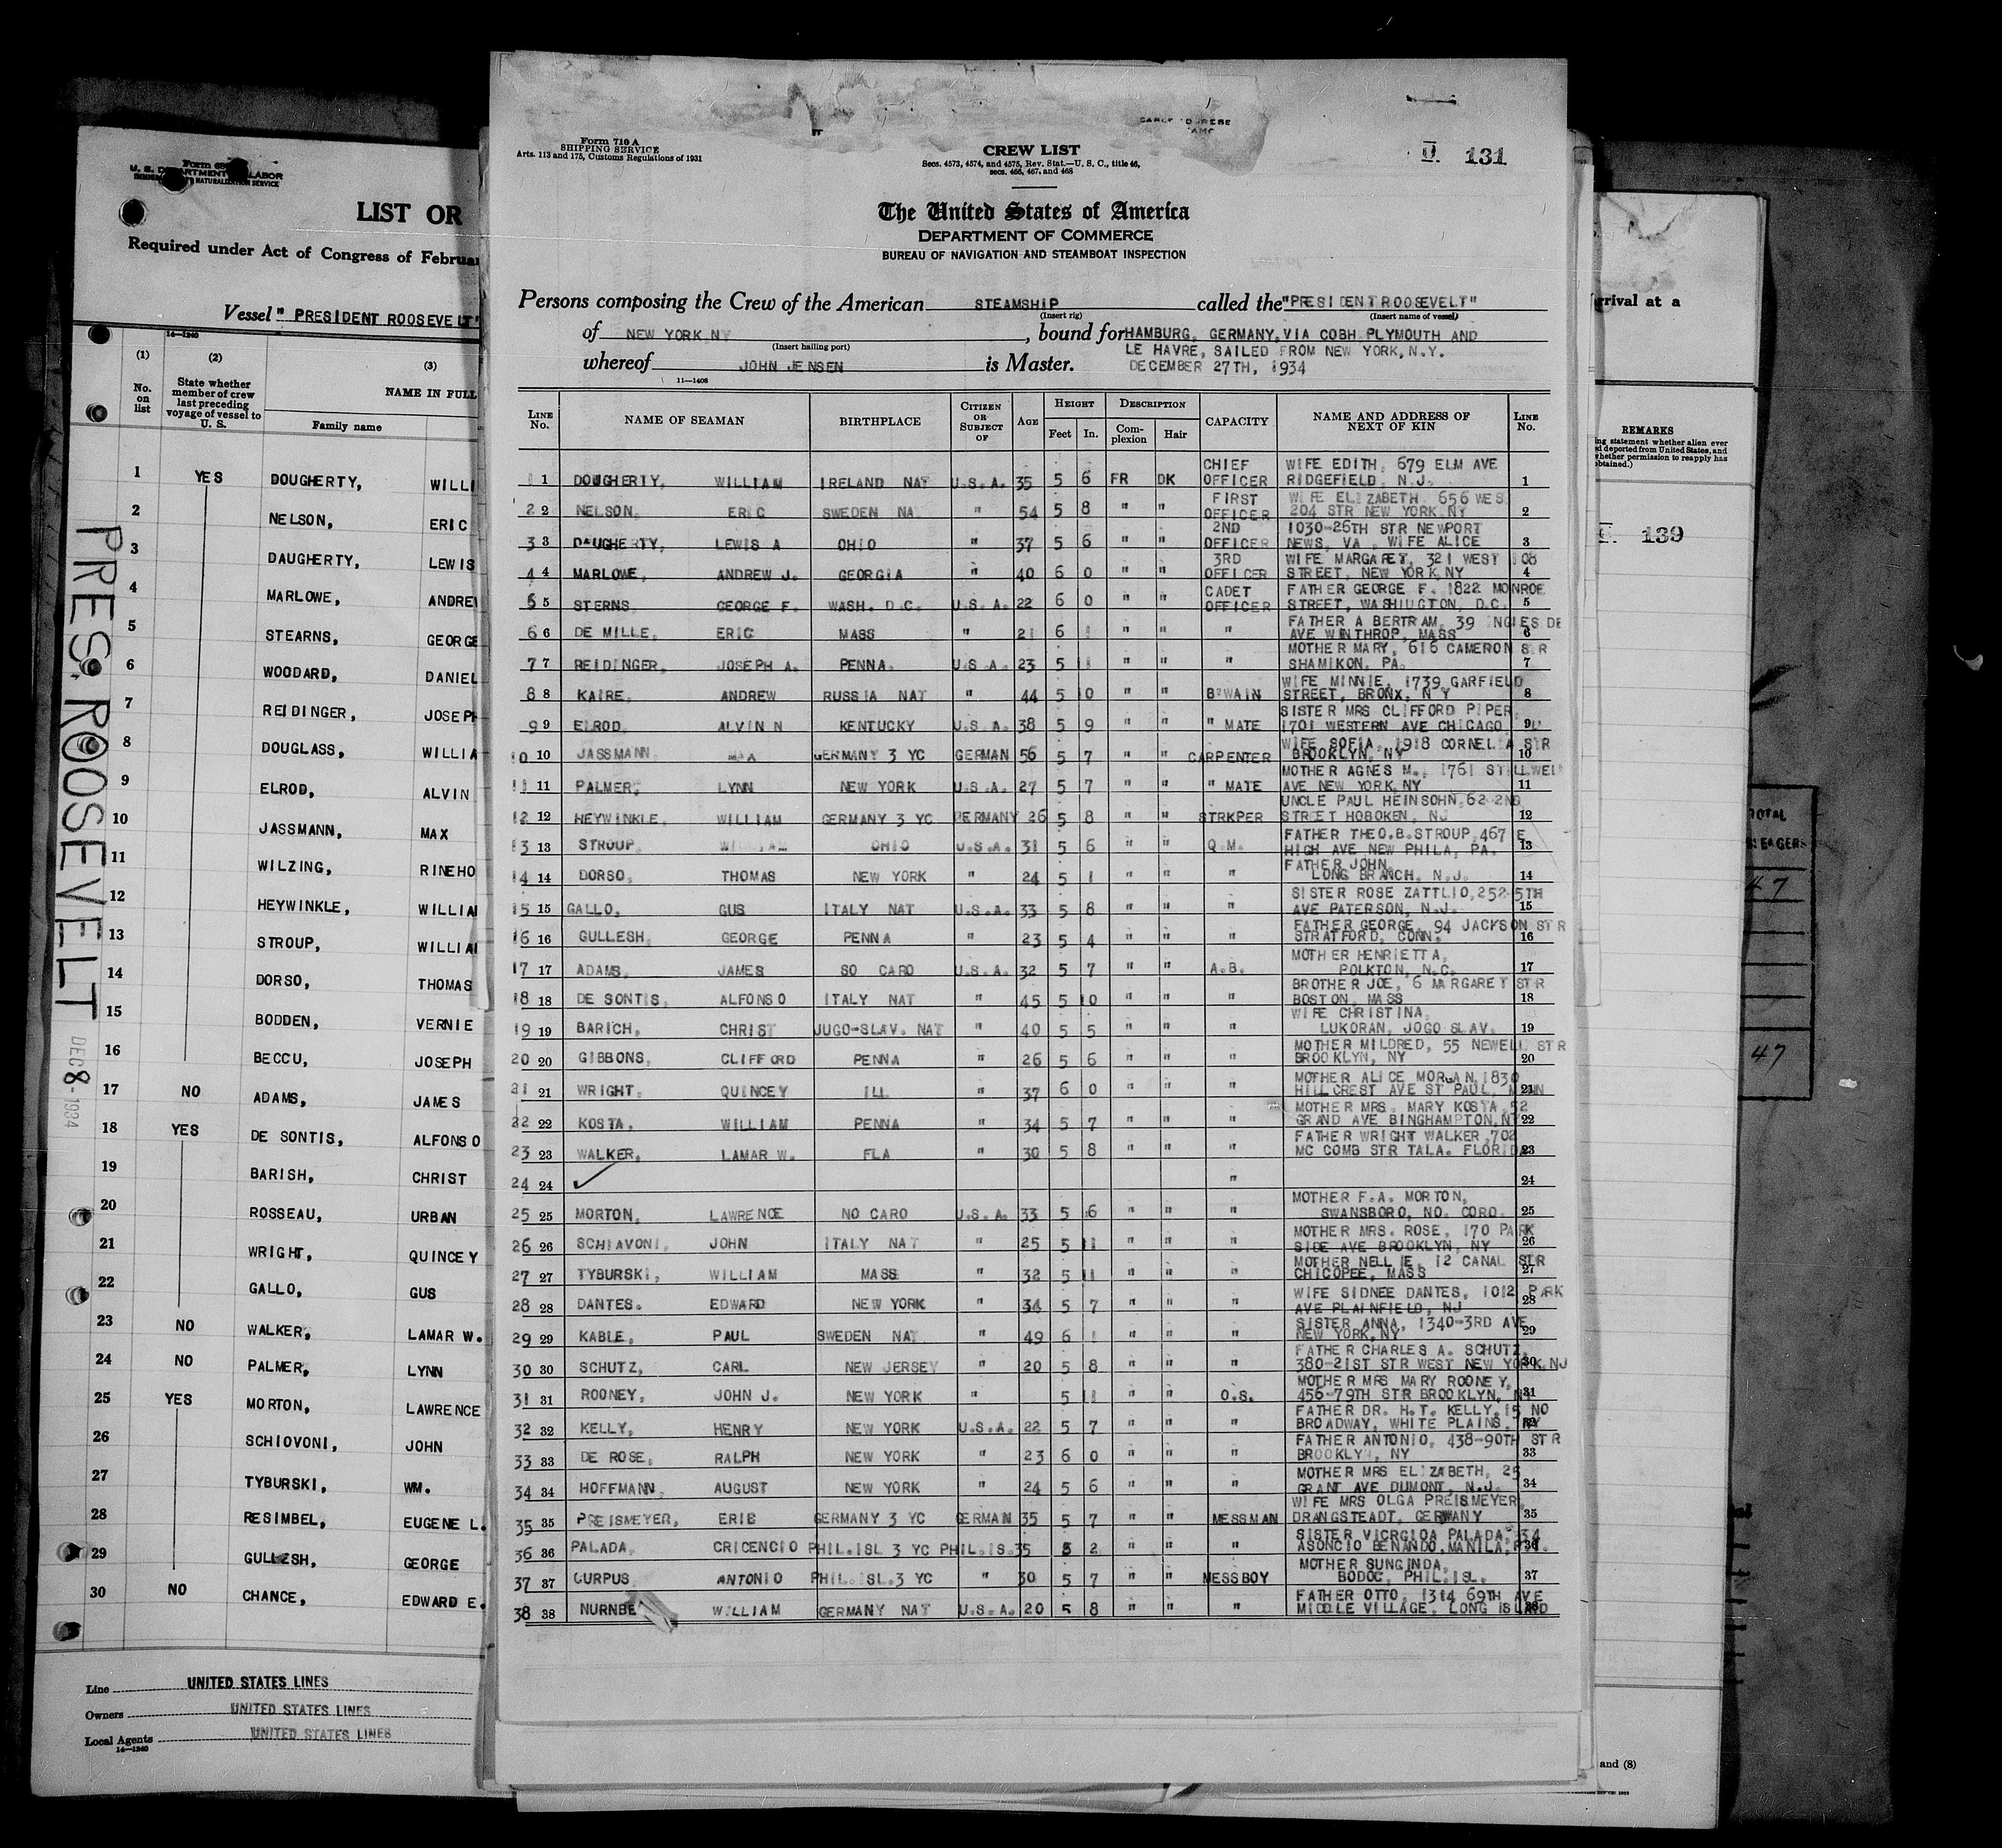 Form 710 A
SHIPPING SERVICE
Arts. 113 and 175, Customs Regulations of 1931
CREW LIST
Secs. 4573, 4574, and 4575, Rev. Stat.—U. S. C., title 46,
secs. 466, 467, and 468
131
The United States of America
DEPARTMENT OF COMMERCE
BUREAU OF NAVIGATION AND STEAMBOAT INSPECTION
Persons composing the Crew of the American STEAMSHIP called the "PRESIDENT ROOSEVELT"
(Insert rig) (Insert name of vessel)
of NEW YORK, NY, bound for HAMBURG, GERMANY, VIA COBH PLYMOUTH AND
(Insert hailing port) LE HAVRE, SAILED FROM NEW YORK, N.Y.
whereof JOHN JENSEN is Master. DECEMBER 27TH, 1934
11—1408
LINE No. NAME OF SEAMAN BIRTHPLACE CITIZEN OR SUBJECT OF AGE HEIGHT Feet In. DESCRIPTION Complexion Hair CAPACITY NAME AND ADDRESS OF NEXT OF KIN LINE No.
1 1 DOUGHERTY, WILLIAM IRELAND NAT U.S.A. 35 5 6 FR DK CHIEF OFFICER WIFE EDITH, 679 ELM AVE RIDGEFIELD, N.J. 1
2 2 NELSON, ERIC SWEDEN NA " 54 5 8 " " FIRST OFFICER WIFE ELIZABETH 656 WES 204 STR NEW YORK, NY 2
3 3 DAUGHERTY, LEWIS A OHIO " 37 5 6 " " 2ND OFFICER 1030-26TH STR NEWPORT NEWS, VA , WIFE ALICE 3
4 4 MARLOWE, ANDREW J. GEORGIA " 40 6 0 " " 3RD OFFICER WIFE MARGARET, 321 WEST 108 STREET, NEW YORK, NY 4
5 5 STERNS GEORGE F. WASH. D.C. U.S.A. 22 6 0 " " CADET OFFICER FATHER GEORGE F. 1822 MONROE STREET, WASHIUGTON, D.C. 5
6 6 DE MILLE, ERIC MASS " 21 6 1 " " " FATHER A BERTRAM, 39 INGLESDE AVE WINTHROP, MASS 6
7 7 REIDINGER, JOSEPH A. PENNA. U.S.A. 23 5 11 " " " MOTHER MARY, 616 CAMERON STR SHAMIKON, PA. 7
8 8 KAIRE, ANDREW RUSSIA NAT " 44 5 10 " " B'WAIN WIFE MINNIE, 1739 GARFIELD STREET, BRONX, N Y 8
9 9 ELROD ALVIN N KENTUCKY U.S.A. 38 5 9 " " " MATE SISTER MRS CLIFFORD PIPER, 1701 WESTERN AVE CHICAGO 9
10 10 JASSMANN MAX GERMANY 3 YC GERMAN 56 5 7 " " CARPENTER WIFE SOFIA, 1918 CORNELIA STR BROOKLYN, NY 10
11 11 PALMER, LYNN NEW YORK U.S.A. 27 5 7 " " " MATE MOTHER AGNES M., 1761 STILLWELL AVE NEW YORK, NY 11
12 12 HEYWINKLE, WILLIAM GERMANY 3 YC PERMANY 26 5 8 " " STRKPER UNCLE PAUL HEINSOHN, 62 2ND STREET HOBOKEN, NJ 12
13 13 STROUP, WILLIAM OHIO U.S.A. 31 5 6 " " Q.M. FATHER THEO.B.STROUP, 467 E HIGH AVE NEW PHILA, PA. 13
14 14 DORSO, THOMAS NEW YORK " 24 5 1 " " " FATHER JOHN, LONG BRANCH, N.J. 14
15 15 GALLO, GUS ITALY NAT U.S.A. 33 5 8 " " " SISTER ROSE ZATTLIO, 252-5TH AVE PATERSON, N.J. 15
16 16 GULLESH, GEORGE PENNA " 23 5 4 " " " FATHER GEORGE, 94 JACKSON STR STRATFORD, CONN. 16
17 17 ADAMS, JAMES SO CARO U.S.A. 32 5 7 " " A.B. MOTHER HENRIETTA, POLKTON, N.C. 17
18 18 DE SONTIS, ALFONSO ITALY NAT " 45 5 10 " " " BROTHER JOE, 6 MARGARET STR BOSTON, MASS 18
19 19 BARICH, CHRIST JUGO-SLAV. NAT " 40 5 5 " " " WIFE CHRISTINA, LUKORAN, JOGO SLAV. 19
20 20 GIBBONS, CLIFFORD PENNA " 26 5 6 " " " MOTHER MILDRED, 55 NEWELL STR BROOKLYN, NY 20
21 21 WRIGHT, QUINCEY ILL " 37 6 0 " " " MOTHER ALICE MORGAN, 1830 HILLCREST AVE ST PAUL, MINN 21
22 22 KOSTA, WILLIAM PENNA " 34 5 7 " " " MOTHER MRS. MARY KOSTA, 52 GRAND AVE BINGHAMPTON, NY 22
23 23 WALKER, LAMAR W. FLA " 30 5 8 " " " FATHER WRIGHT WALKER, 702 MC COMB STR TALA. FLORIDA 23
24 24 " 24
25 25 MORTON, LAWRENCE NO CARO U.S.A. 33 5 6 " " " MOTHER F.A. MORTON, SWANSBORO, NO. CORO. 25
26 26 SCHIAVONI, JOHN ITALY NAT " 25 5 11 " " " MOTHER MRS. ROSE, 170 PARK SIDE AVE BROOKLYN, NY 26
27 27 TYBURSKI, WILLIAM MASS " 32 5 11 " " " MOTHER NELLIE, 12 CANAL STR CHICOPEE, MASS 27
28 28 DANTES. EDWARD NEW YORK " 34 5 7 " " " WIFE SIDNEE DANTES, 1012 PARK AVE PLAINFIELD, NJ 28
29 29 KABLE, PAUL SWEDEN NAT " 49 6 1 " " " SISTER ANNA, 1340-3RD AVE NEW YORK, NY 29
30 30 SCHUTZ, CARL NEW JERSEY " 20 5 8 " " " FATHER CHARLES A. SCHUTZ, 380-21ST STR WEST NEW YORK, NJ 30
31 31 ROONEY, JOHN J. NEW YORK " 5 11 " " O.S. MOTHER MRS MARY ROONEY, 456-79TH STR BROOKLYN, NY 31
32 32 KELLY, HENRY NEW YORK U.S.A. 22 5 7 " " " FATHER DR. H.T. KELLY, 15 NO BROADWAY, WHITE PLAINS, NY 32
33 33 DE ROSE, RALPH NEW YORK " 23 6 0 " " " FATHER ANTONIO, 438-90TH STR BROOKLYN, NY 33
34 34 HOFFMANN, AUGUST NEW YORK " 24 5 6 " " " MOTHER MRS ELIZABETH, 25 GRANT AVE DUMONT, N.J. 34
35 35 PREISMEYER, ERIB GERMANY 3 YC GERMAN 35 5 7 " " MESSMAN WIFE MRS OLGA PREISMEYER, DRANGSTEADT, GERMANY 35
36 36 PALADA, CRICENCIO PHIL.ISL 3 YC PHIL.IS. 35 5 2 " " " SISTER VICRGLOA PALADA, 34 ASONCIO BENANDO, MANILA, P.I. 36
37 37 GURPUS ANTONIO PHIL.ISL.3 YC " 30 5 7 " " MESSBOY MOTHER SUNGINDA, BODOC, PHIL.ISL. 37
38 38 NURNBE WILLIAM GERMANY NAT U.S.A. 20 5 8 " " " FATHER OTTO, 1314 69TH AVE MIDDLE VILLAGE, LONG ISLAND 38
U. S. DEPARTMENT OF LABOR
LIST OR
Required under Act of Congress of Februar
Vessel " PRESIDENT ROOSEVELT"
14—1240
(1) (2) (3)
No. on list State whether member of crew last preceding voyage of vessel to U. S. NAME IN FULL
Family name
1 YES DOUGHERTY, WILLI
2 NELSON, ERIC
3 DAUGHERTY, LEWIS
4 MARLOWE, ANDRE
5 STEARNS, GEORGE
6 WOODARD, DANIEL
7 REIDINGER, JOSEPH
8 DOUGLASS, WILLIA
9 ELROD, ALVIN
10 JASSMANN, MAX
11 WILZING, RINEHO
12 HEYWINKLE, WILLIA
13 STROUP, WILLIA
14 DORSO, THOMAS
15 BODDEN, VERNIE
16 BECCU, JOSEPH
17 NO ADAMS, JAMES
18 YES DE SONTIS, ALFONSO
19 BARISH, CHRIST
20 ROSSEAU, URBAN
21 WRIGHT, QUINCEY
22 GALLO, GUS
23 NO WALKER, LAMAR W.
24 NO PALMER, LYNN
25 YES MORTON, LAWRENCE
26 SCHIOVONI, JOHN
27 TYBURSKI, WM.
28 RESIMBEL, EUGENE L.
29 GULLESH, GEORGE
30 NO CHANCE, EDWARD E.
Line UNITED STATES LINES
Owners UNITED STATES LINES
Local Agents UNITED STATES LINES
14—1240
PRES. ROOSEVELT
DEC 8-1934
rrival at a
REMARKS
ing statement whether alien ever
d deported from United States, and
whether permission to reapply has
obtained.)
139
TOTAL
47
47
and (8)